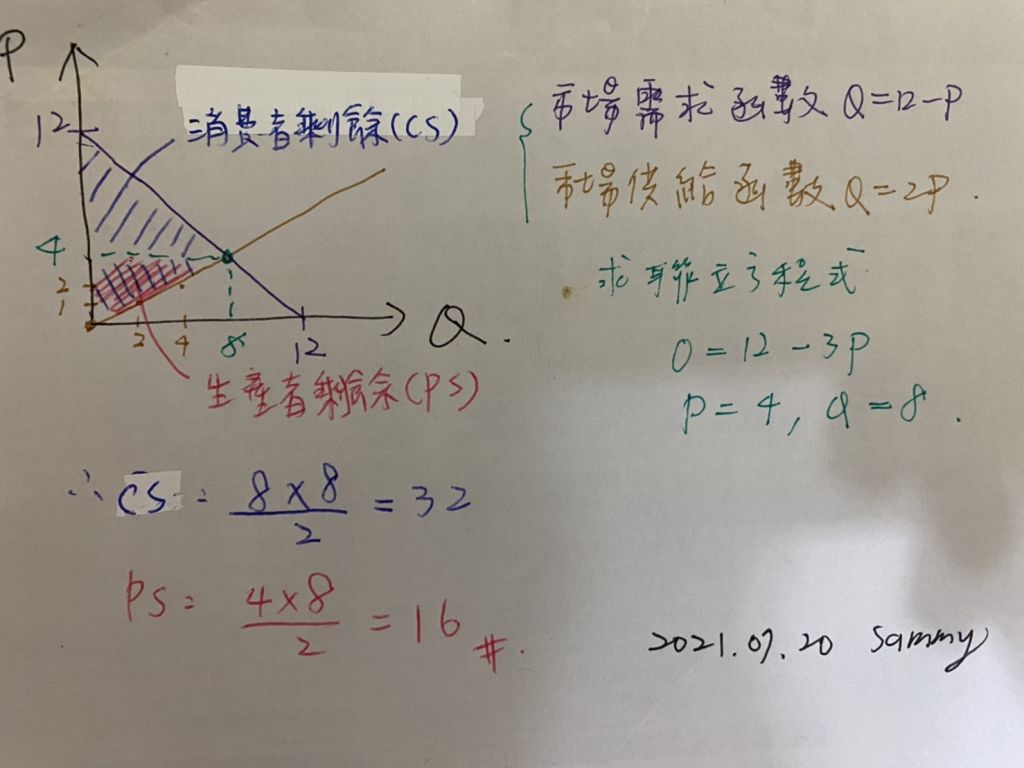 P
12
消費者剩餘(CS)
4
2
1
2 4 8 12
Q.
生產者剩餘(PS)
市場需求函數 Q=12-P
市場供給函數 Q=2P.
求聯立方程式
0=12-3P
P=4, Q=8.
∴ CS = 8×8/2 = 32
PS = 4×8/2 = 16 #.
2021.09.20 Sammy